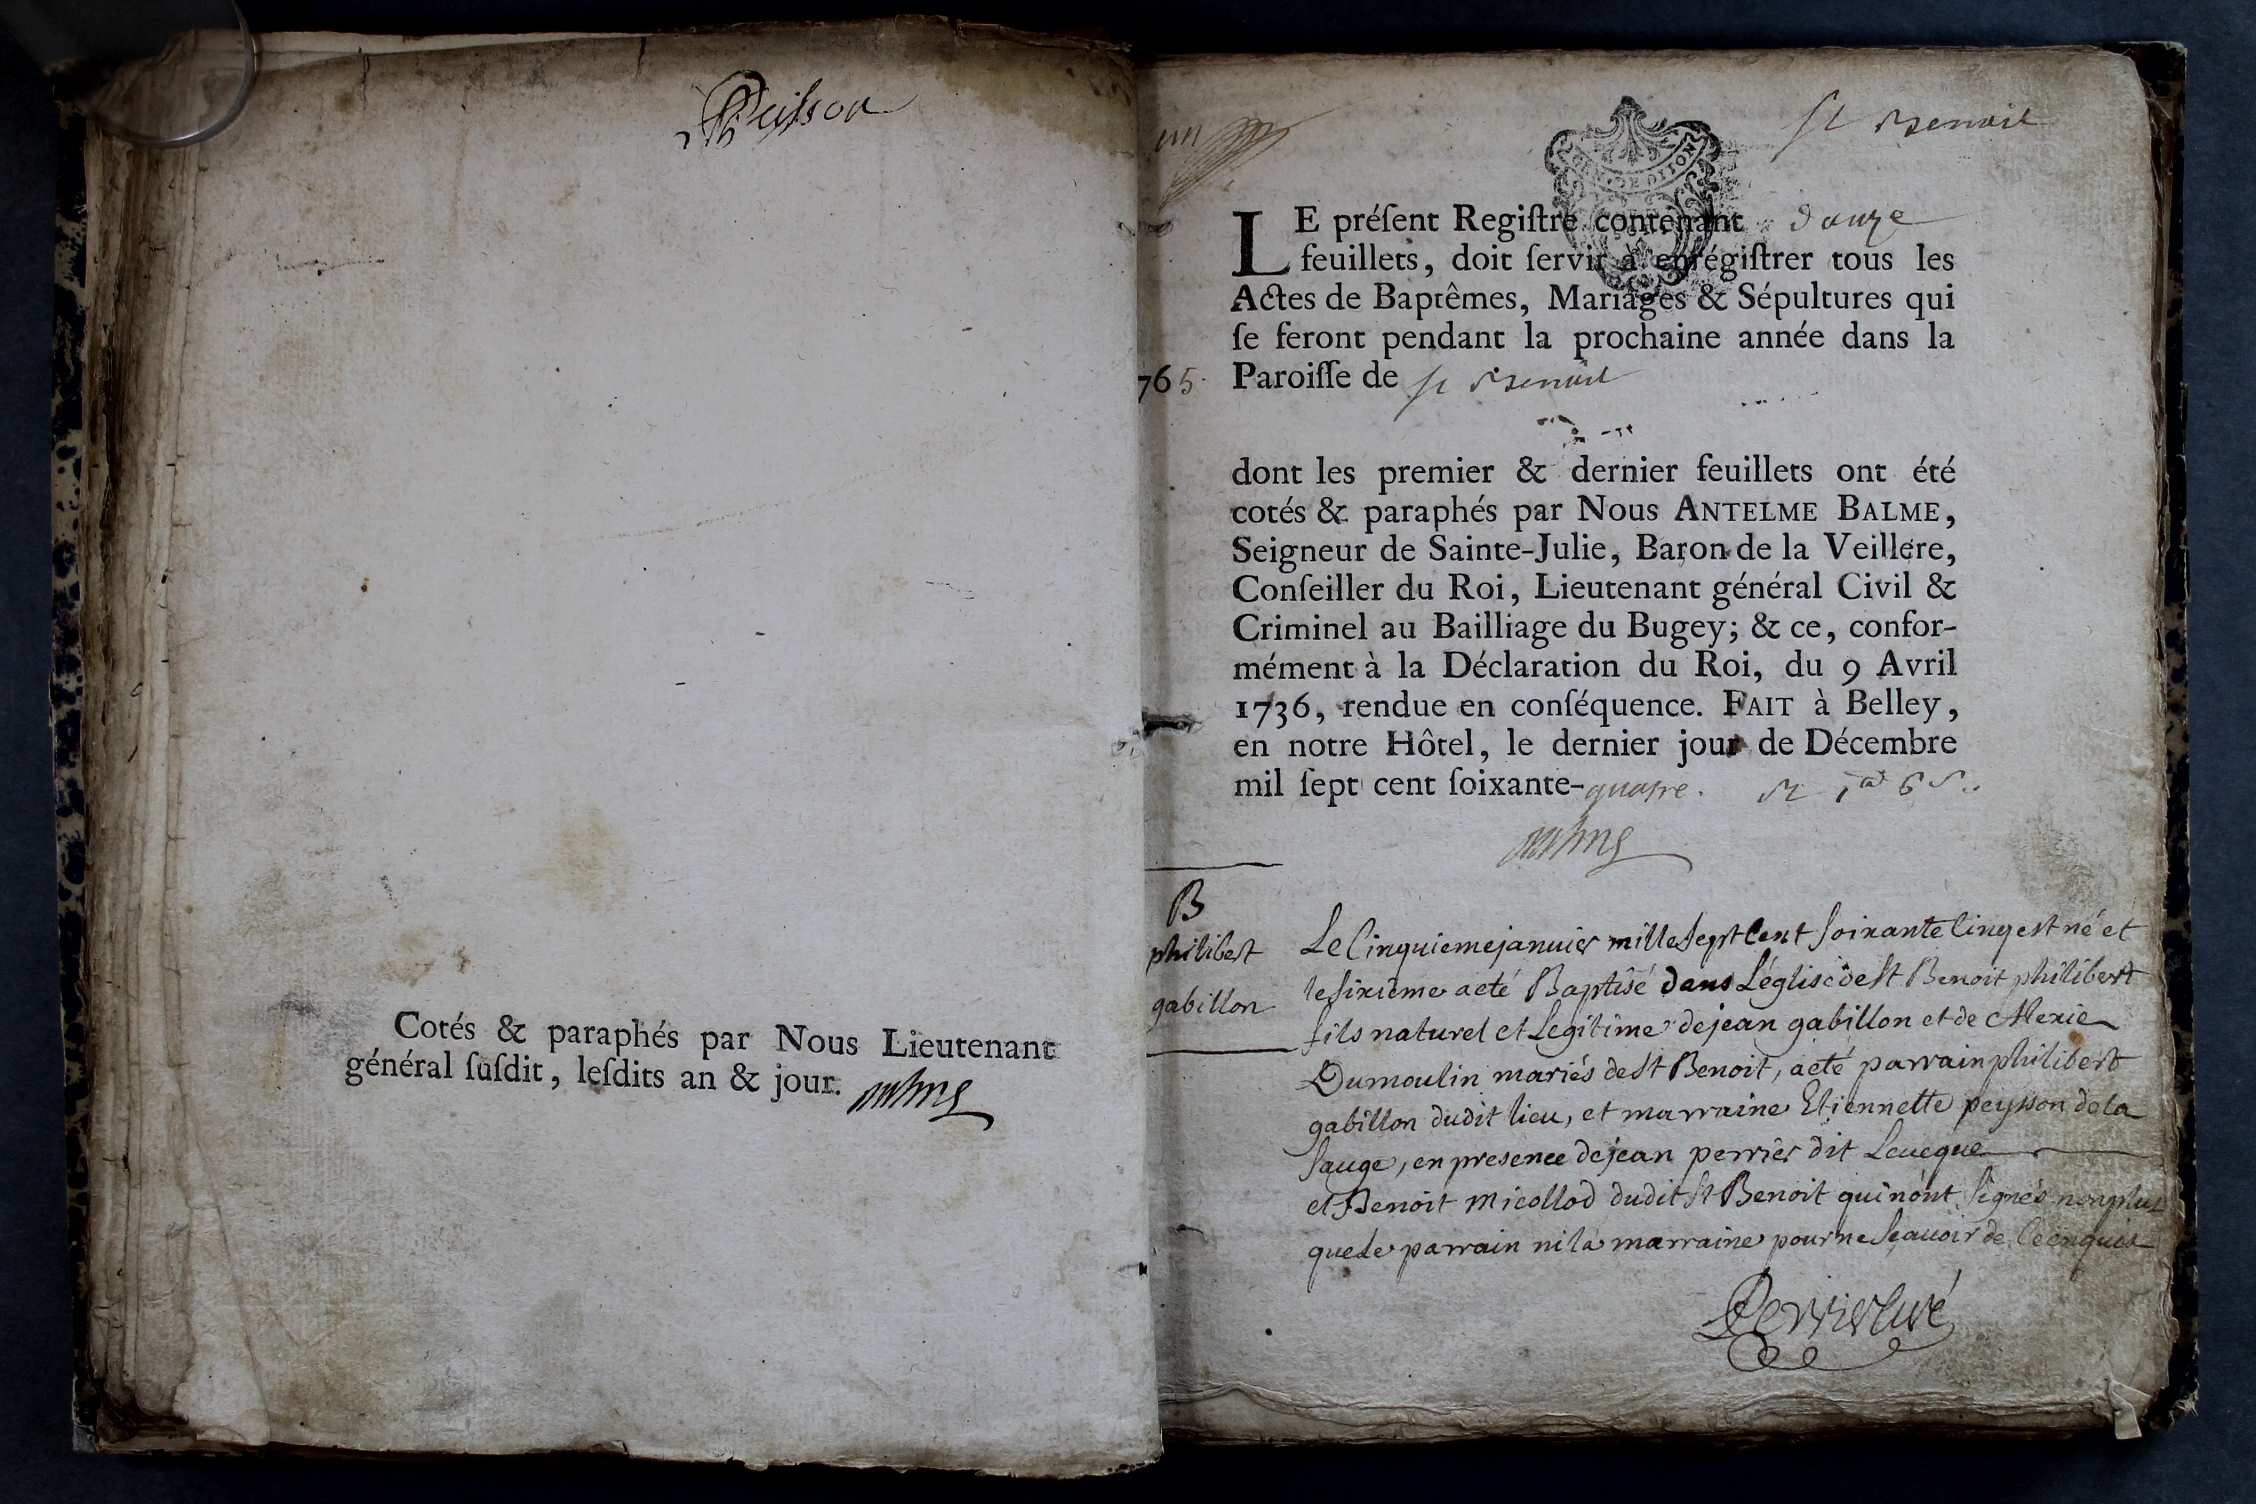 Cotés & paraphés par Nous Lieutenant
général ſuſdit, leſdits an & jour.
un
St Benoit
GEN. DE DIJON
LE préſent Regiſtre contenant douze
feuillets, doit ſervir à enrégiſtrer tous les
Actes de Baptêmes, Mariages & Sépultures qui
ſe feront pendant la prochaine année dans la
765. Paroiſſe de St Benoit
dont les premier & dernier feuillets ont été
cotés & paraphés par Nous ANTELME BALME,
Seigneur de Sainte-Julie, Baron de la Veillere,
Conſeiller du Roi, Lieutenant général Civil &
Criminel au Bailliage du Bugey; & ce, confor-
mément à la Déclaration du Roi, du 9 Avril
1736, rendue en conſéquence. FAIT à Belley,
en notre Hôtel, le dernier jour de Décembre
mil ſept cent ſoixante-quatre.
B
philibert
gabillon
Le Cinquieme januier mille sept Cent soixante Cinq est né et
le sixième a eté Baptisé dans L'église de St Benoit philibert
fils naturel et Legitime de jean gabillon et de
Dumoulin mariés de St Benoit, a eté parrain philibert
gabillon dudit lieu, et marraine Etiennette peysson de la
sauge, en presence de jean perrier dit Leueque
et Benoit micollod dudit St Benoit qui n'ont signés non plus
que le parrain ni la marraine pour ne sçauoir de Ce enquis
Perrier Curé